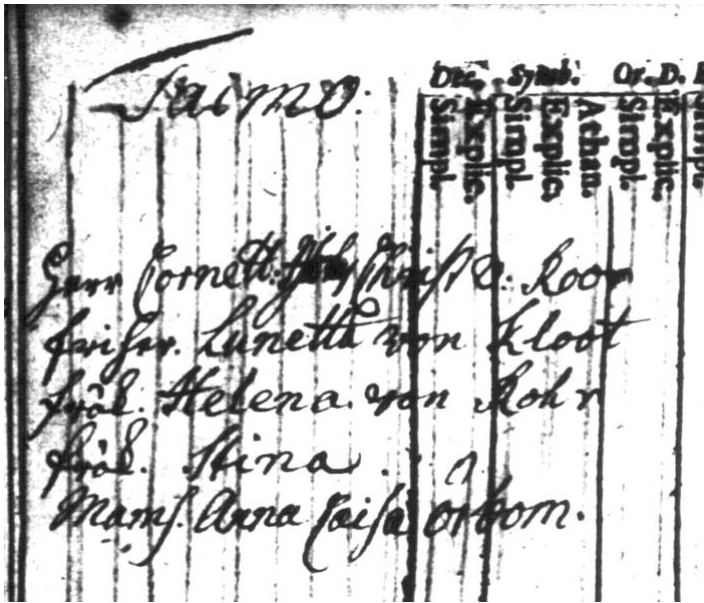 Taimo:
Dec. Symb. Or. D.
Simpl. Explic. Simpl. Explic. Athan. Simpl. Explic.
Herr Cornett: Christ v: Roor
friherr. Lunetta von Kloot
fröl. Helena von Rohr
fröl. Stina.
Mams. Anna Caisa örbom.